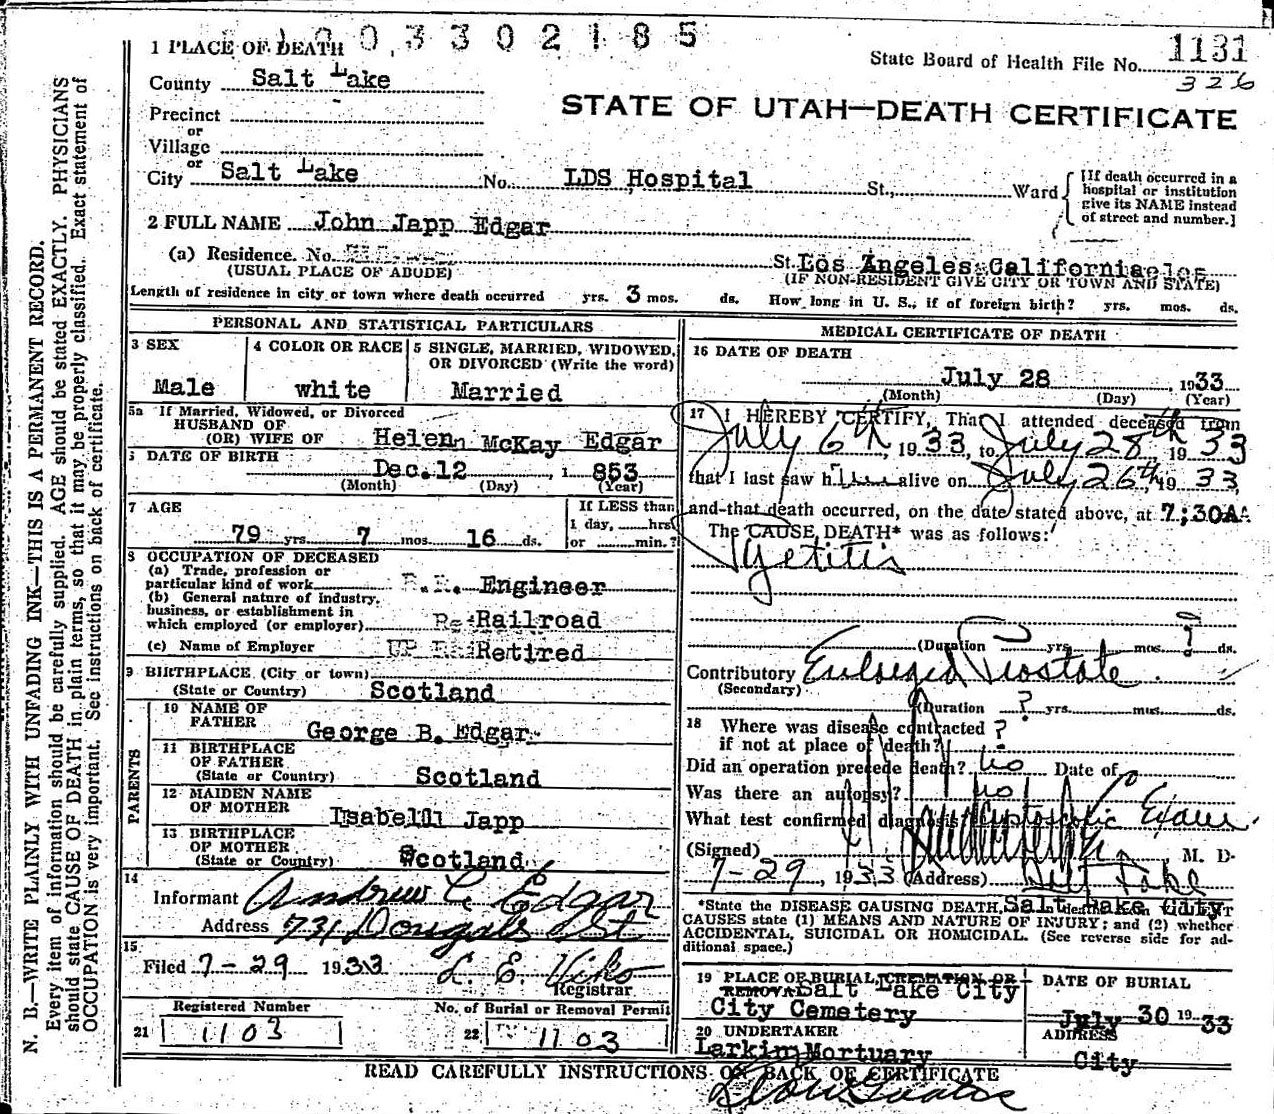 1003302185
1 PLACE OF DEATH
State Board of Health File No. 1131
326
County Salt Lake
STATE OF UTAH—DEATH CERTIFICATE
Precinct
or
Village
or
City Salt Lake No. LDS Hospital St., Ward
[If death occurred in a
hospital or institution
give its NAME instead
of street and number.]
2 FULL NAME John Japp Edgar
(a) Residence. No. St. Los Angeles California
(USUAL PLACE OF ABODE) (IF NON-RESIDENT GIVE CITY OR TOWN AND STATE)
Length of residence in city or town where death occurred yrs. 3 mos. ds. How long in U. S., if of foreign birth? yrs. mos. ds.
PERSONAL AND STATISTICAL PARTICULARS
3 SEX
Male
4 COLOR OR RACE
white
5 SINGLE, MARRIED, WIDOWED,
OR DIVORCED (Write the word)
Married
5a If Married, Widowed, or Divorced
HUSBAND OF
(OR) WIFE OF Helen McKay Edgar
6 DATE OF BIRTH
Dec. 12, 1853
(Month) (Day) (Year)
7 AGE
79 yrs. 7 mos. 16 ds.
If LESS than
1 day, hrs.
or min.?
8 OCCUPATION OF DECEASED
(a) Trade, profession or
particular kind of work R.R. Engineer
(b) General nature of industry,
business, or establishment in
which employed (or employer) Railroad
(c) Name of Employer Retired
9 BIRTHPLACE (City or town)
(State or Country) Scotland
PARENTS
10 NAME OF
FATHER
George B. Edgar
11 BIRTHPLACE
OF FATHER
(State or Country) Scotland
12 MAIDEN NAME
OF MOTHER
Isabell Japp
13 BIRTHPLACE
OF MOTHER
(State or Country) Scotland
14
Informant Andrew C. Edgar
Address 731 Dougals St
15.
Filed 7-29 1933 L. E. Viko
Registrar
Registered Number
21 1103
No. of Burial or Removal Permit
22 1103
MEDICAL CERTIFICATE OF DEATH
16 DATE OF DEATH
July 28, 1933
(Month) (Day) (Year)
17 I HEREBY CERTIFY, That I attended deceased from
July 6th, 1933, to July 28th 1933
that I last saw him alive on July 26th, 1933,
and that death occurred, on the date stated above, at 7;30A
The CAUSE DEATH* was as follows:
(Duration yrs. mos. ? ds.
Contributory Enlarged Prostate
(Secondary)
(Duration ? yrs. mos. ds.
18 Where was disease contracted ?
if not at place of death?
Did an operation precede death? No Date of
Was there an autopsy? no
What test confirmed diagnosis Cystoscopic Exam
(Signed) M. D.
7-29, 1933 (Address) Salt Lake
Salt Lake City
*State the DISEASE CAUSING DEATH,
CAUSES state (1) MEANS AND NATURE OF INJURY; and (2) whether
ACCIDENTAL, SUICIDAL OR HOMICIDAL. (See reverse side for ad-
ditional space.)
19 PLACE OF BURIAL, CREMATION, OR
REMOVAL Salt Lake City
City Cemetery
DATE OF BURIAL
July 30 1933
20 UNDERTAKER
Larkin Mortuary
ADDRESS
City
READ CAREFULLY INSTRUCTIONS ON BACK OF CERTIFICATE
N. B.—WRITE PLAINLY WITH UNFADING INK—THIS IS A PERMANENT RECORD.
Every item of information should be carefully supplied. AGE should be stated EXACTLY. PHYSICIANS
should state CAUSE OF DEATH in plain terms, so that it may be properly classified. Exact statement of
OCCUPATION is very important. See instructions on back of certificate.